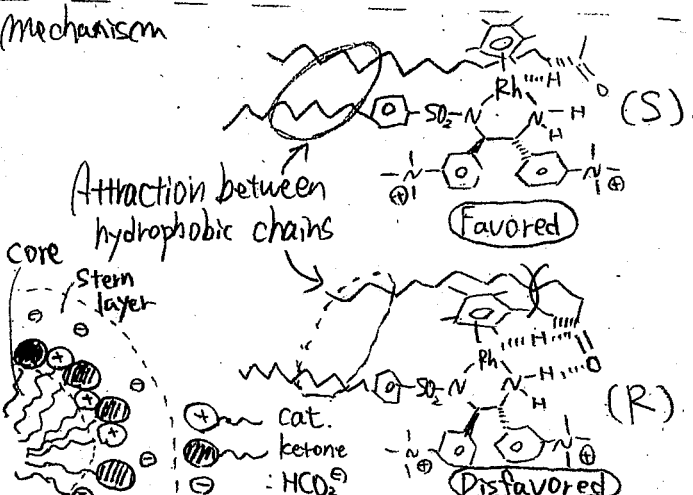 Mechanism
Rh H
O
SO₂ N N H
H
(S)
N ⊕ N ⊕
Attraction between
hydrophobic chains
Favored
core
Stern
layer
⊖ ⊖
Rh H O
SO₂ N N H
H
(R)
⊕ cat.
ketone
⊖ : HCO₂⊖
N ⊕ N ⊕
Disfavored